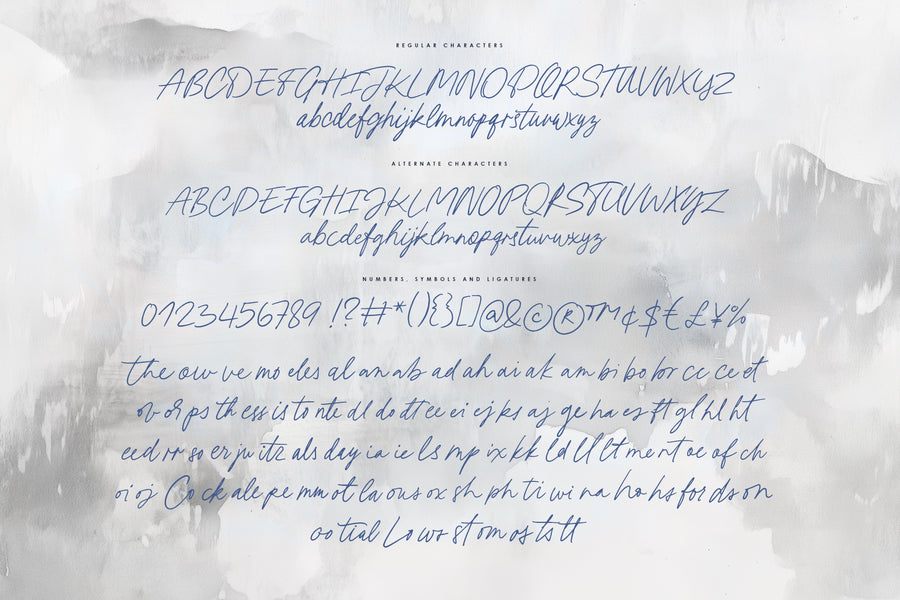 REGULAR CHARACTERS
ABCDEFGHIJKLMNOPQRSTUVWXYZ
abcdefghijklmnopqrstuvwxyz
ALTERNATE CHARACTERS
ABCDEFGHIJKLMNOPQRSTUVWXYZ
abcdefghijklmnopqrstuvwxyz
NUMBERS, SYMBOLS AND LIGATURES
0123456789 !?#*(){}[]@&©®™¢$€£¥%
the ow ve mo eles al an ab ad ah ai ak am bi bo br cc ce et
or ps th ess is to nte dl do dt ee ei ej ks aj ge ha es ft gl hl ht
eed rr so er ju itz als day ia ie ls mp ix kk ld ll lt me nt oe of ch
oi oj Co ck ale pe mm ot la ous ox sh ph ti wi na ho hs for ds on
oo tial Lo wo st om os ts tt